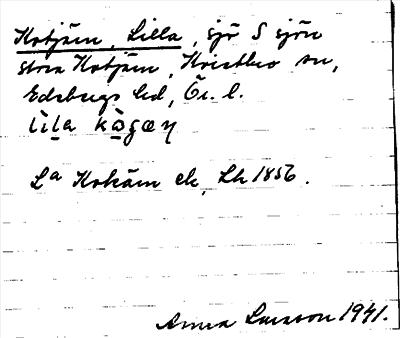 Kotjärn, Lilla, sjö S sjön
stora Kotjärn, Kvistbro sn,
Edsbergs hd, Ör. l.
La Kokärn ek, Lk 1856.
Anna Larsson 1941.